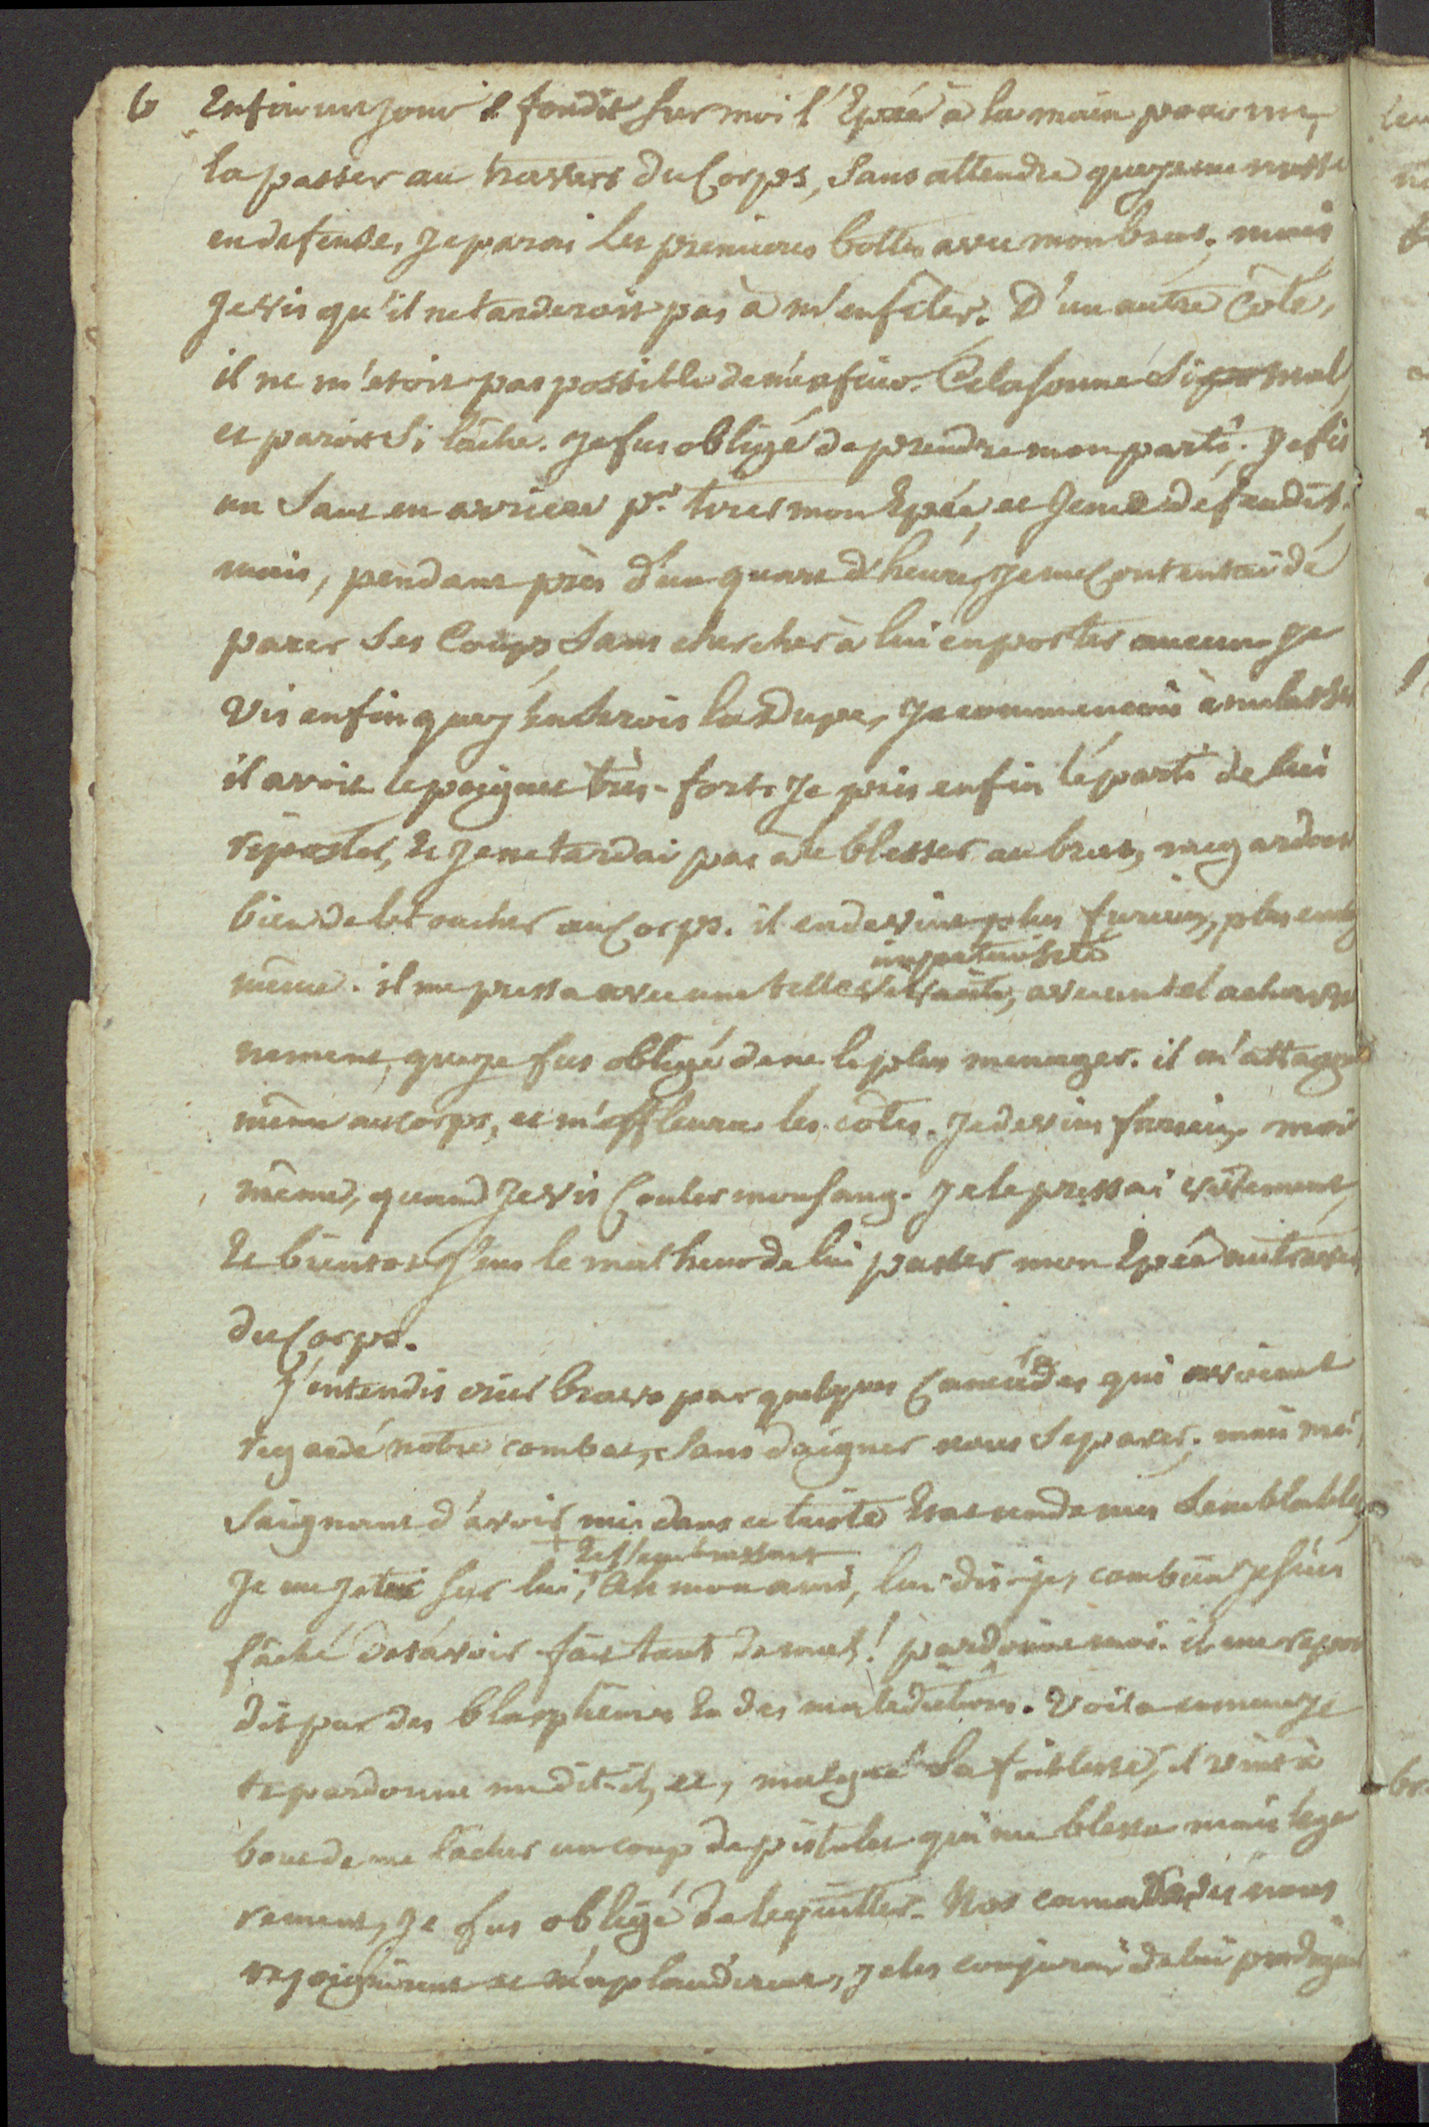 6 Enfin un jour il fondit sur moi l'Epée à la main pour me
la passer au travers du Corps, sans attendre que je me misse
en defense, je parai les premieres bottes avec mon bras, mais
je vis qu'il ne tarderoit pas à m'enfiler. D'un autre Côté,
il ne m'etoit pas possible de m'enfuir. Cela sonne si mal,
et paroit si lâche. Je fus obligé de prendre mon parti. Je fis
un saut en arriere pr. tirer mon Epée, et je me défendis.
mais, pendant près d'un quart d'heure, je me Contentai de
parer ses Coups sans chercher à lui en porter aucun. je
vis enfin que j'en serois la dupe, je commencois à me lasser
il avoit le poignet très-fort. Je pris enfin le parti de lui
riposter, Et je ne tardai pas à le blesser au bras, me gardant
bien de le toucher au Corps. il en devint plus furieux, plus
même. il me pressa avec une telle
impetuosité
avec un tel acharn
nement, que je fus obligé de ne le plus menager. il m'attaqua
même au corps, et m'effleura les côtes. Je devins furieux moi
même, quand je vis Couler mon sang. Je le pressai vivement,
Et bientôt j'eus le malheur de lui passer mon Epée au travers
du Corps.
J'entendis crier bravo par quelques Camarades qui avoient
regardé notre combat, sans daigner nous séparer; mais moi,
saignant d'avoir mis dans ce triste Etat un de mes semblables,
Et l'embrassant
Je me jetai sur lui, Ah mon ami, lui dis-je, combien je suis
fâché de t'avoir fait tant de mal! pardonne moi. il me repon
dit par des blasphemes Et des maledictions. Voila comme je
te pardonne me dit-il, et, malgré sa foiblesse, il vint à
bout de me lacher un coup de pistolet qui me blessa mais lege
rement, je fus obligé de le quitter. Nos camarades nous
rejoignirent et m'applaudirent, je les conjurai de lui prodiguer